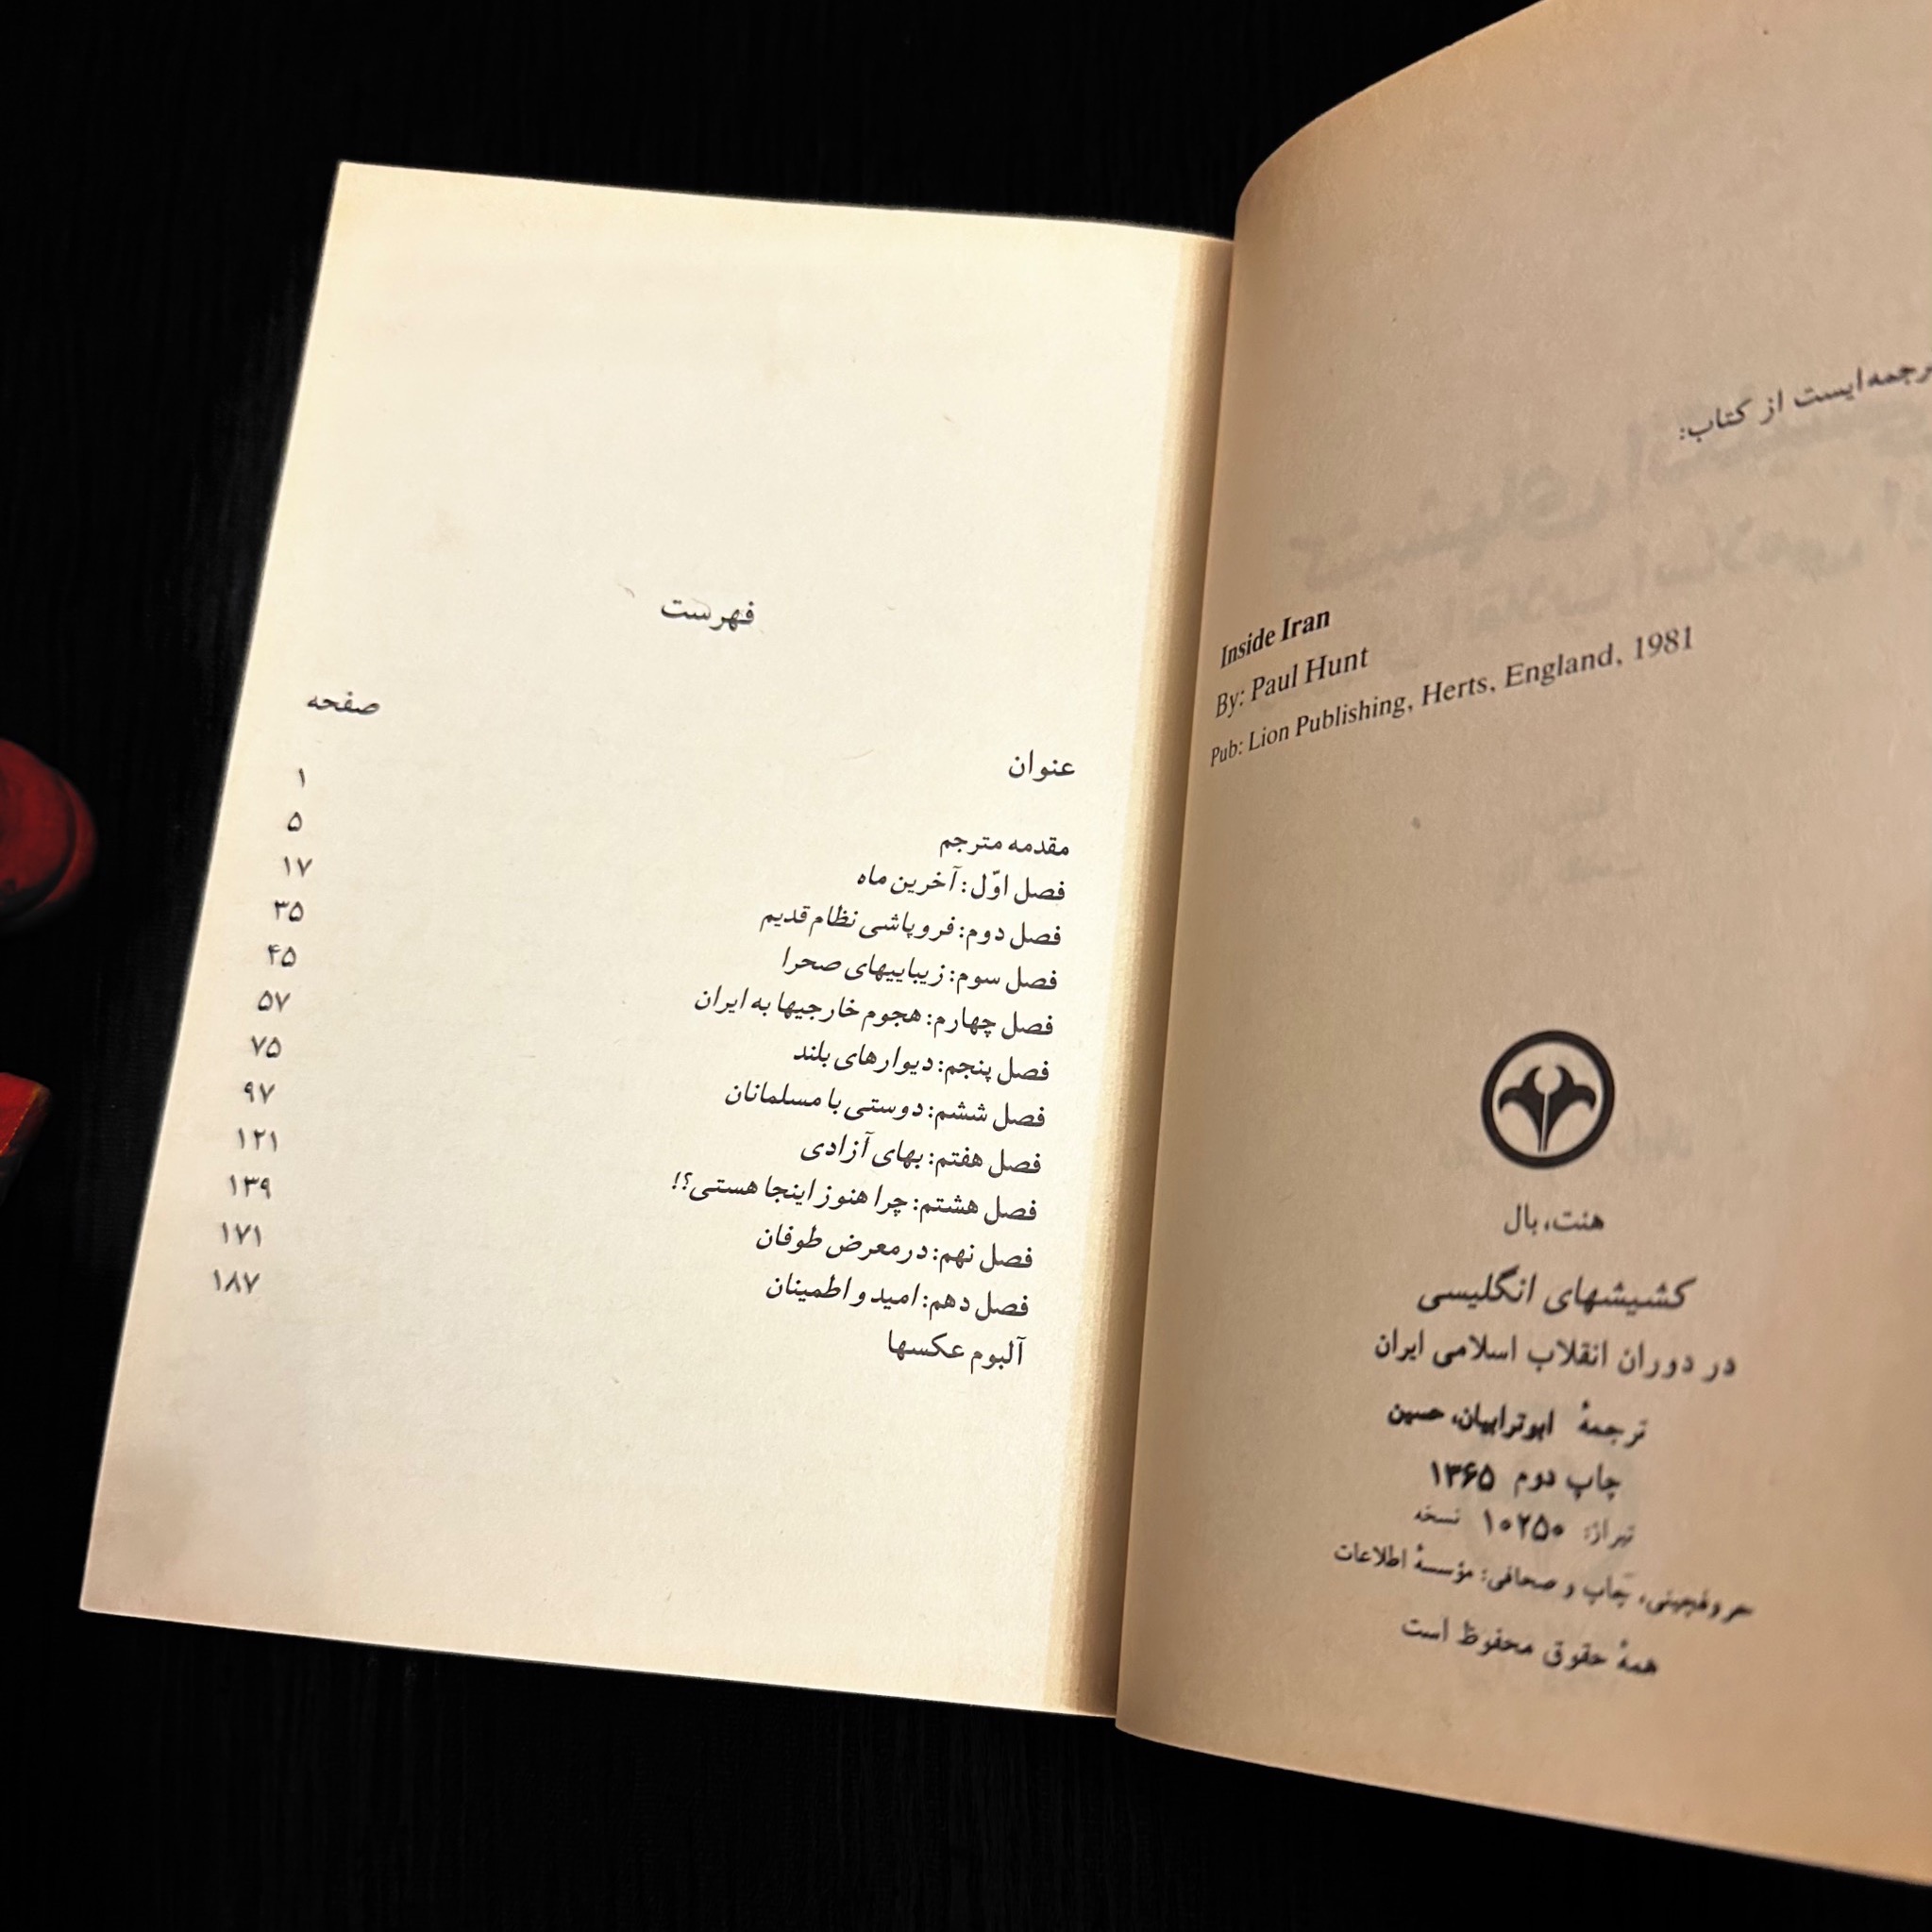 ترجمه‌ایست از کتاب:
Inside Iran
By: Paul Hunt
Pub: Lion Publishing, Herts, England, 1981
هنت، بال
کشیشهای انگلیسی
در دوران انقلاب اسلامی ایران
ترجمهٔ ابوترابیان، حسین
چاپ دوم ۱۳۶۵
تیراژ: ۱۰۲۵۰ نسخه
حروفچینی، چاپ و صحافی: مؤسسهٔ اطلاعات
همهٔ حقوق محفوظ است
فهرست
عنوان صفحه
مقدمه مترجم ۱
فصل اوّل: آخرین ماه ۵
فصل دوم: فروپاشی نظام قدیم ۱۷
فصل سوم: زیباییهای صحرا ۳۵
فصل چهارم: هجوم خارجیها به ایران ۴۵
فصل پنجم: دیوارهای بلند ۵۷
فصل ششم: دوستی با مسلمانان ۷۵
فصل هفتم: بهای آزادی ۹۷
فصل هشتم: چرا هنوز اینجا هستی؟! ۱۲۱
فصل نهم: در معرض طوفان ۱۳۹
فصل دهم: امید و اطمینان ۱۷۱
آلبوم عکسها ۱۸۷